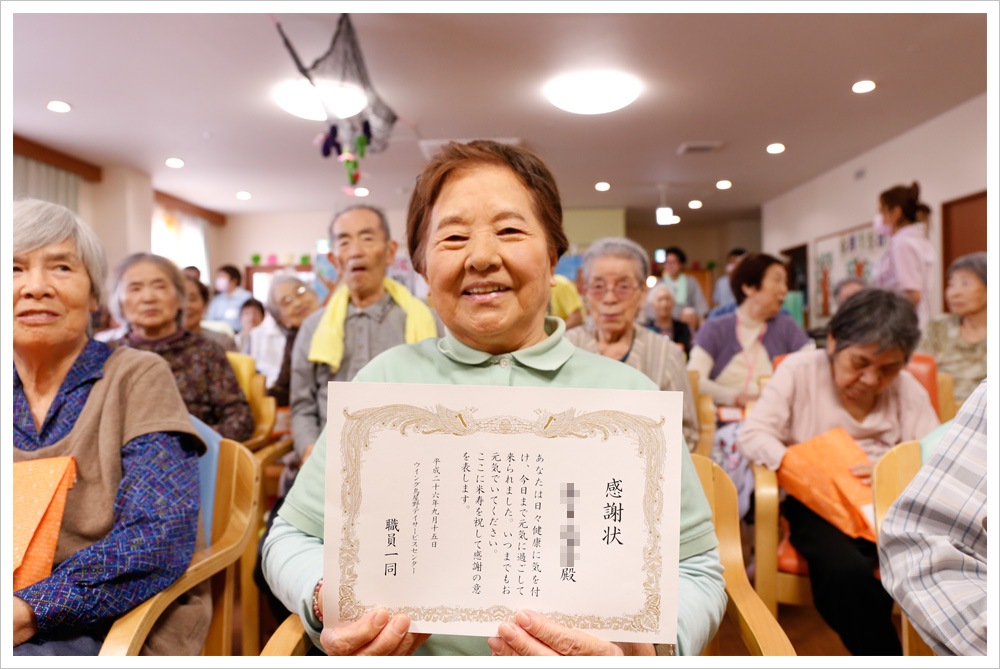 感謝状
殿
あなたは日々健康に気を付
け、今日まで元気に過ごして
来られました。いつまでもお
元気でいてください。
ここに米寿を祝して感謝の意
を表します。
平成二十六年九月十五日
デイサービスセンター
職員一同